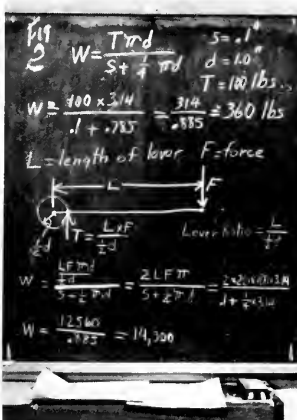 Fig 2
W = Tπd / S + 1/4 πd
S = .1"
d = 1.0"
T = 100 lbs.
W = 100 x 3.14 / .1 + .785 = 314 / .885 = 360 lbs
L = length of lever F = force
L
F
T = LxF / ½d
Lever Ratio = L / ½d
W = LFπd / ½d / S + ¼πd = 2LFπ / S + ¼πd =
W = 12560 / .885 = 14,300